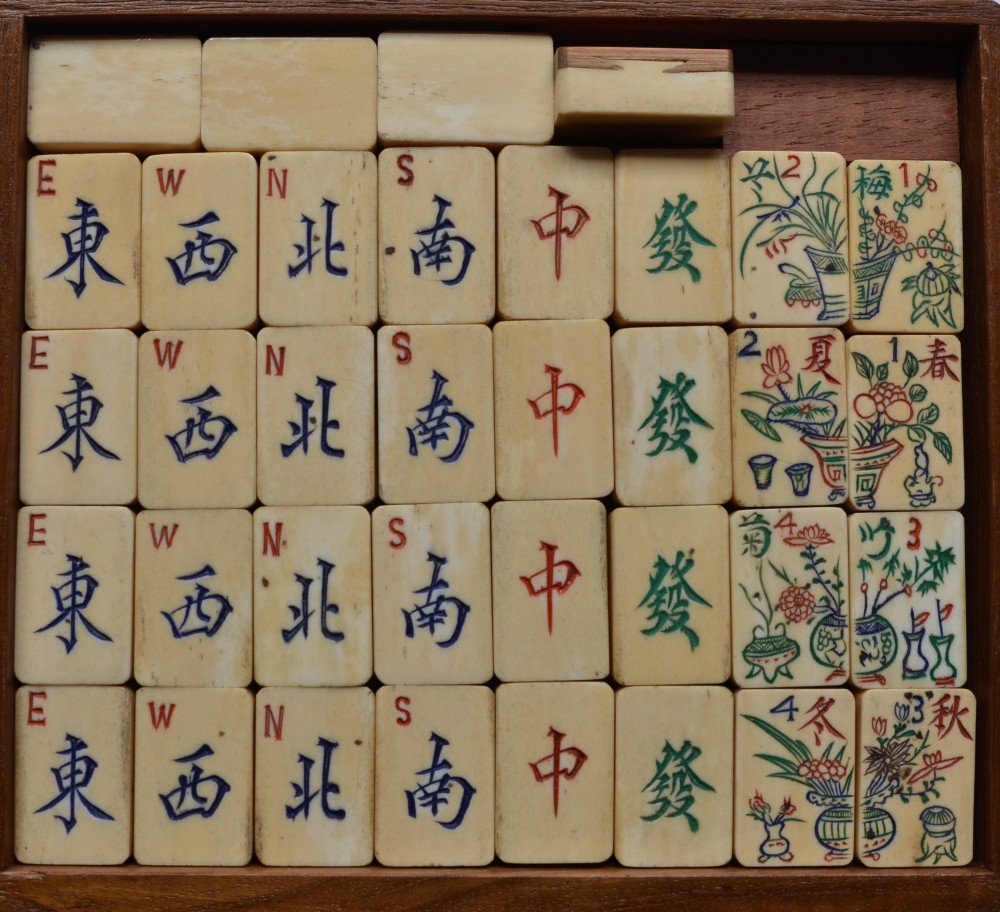 E W N S 2 梅 1
東 西 北 南 中 發
E W N S 2 夏 1 春
東 西 北 南 中 發
E W N S 菊 4 竹 3
東 西 北 南 中 發
E W N S 4 冬 3 秋
東 西 北 南 中 發